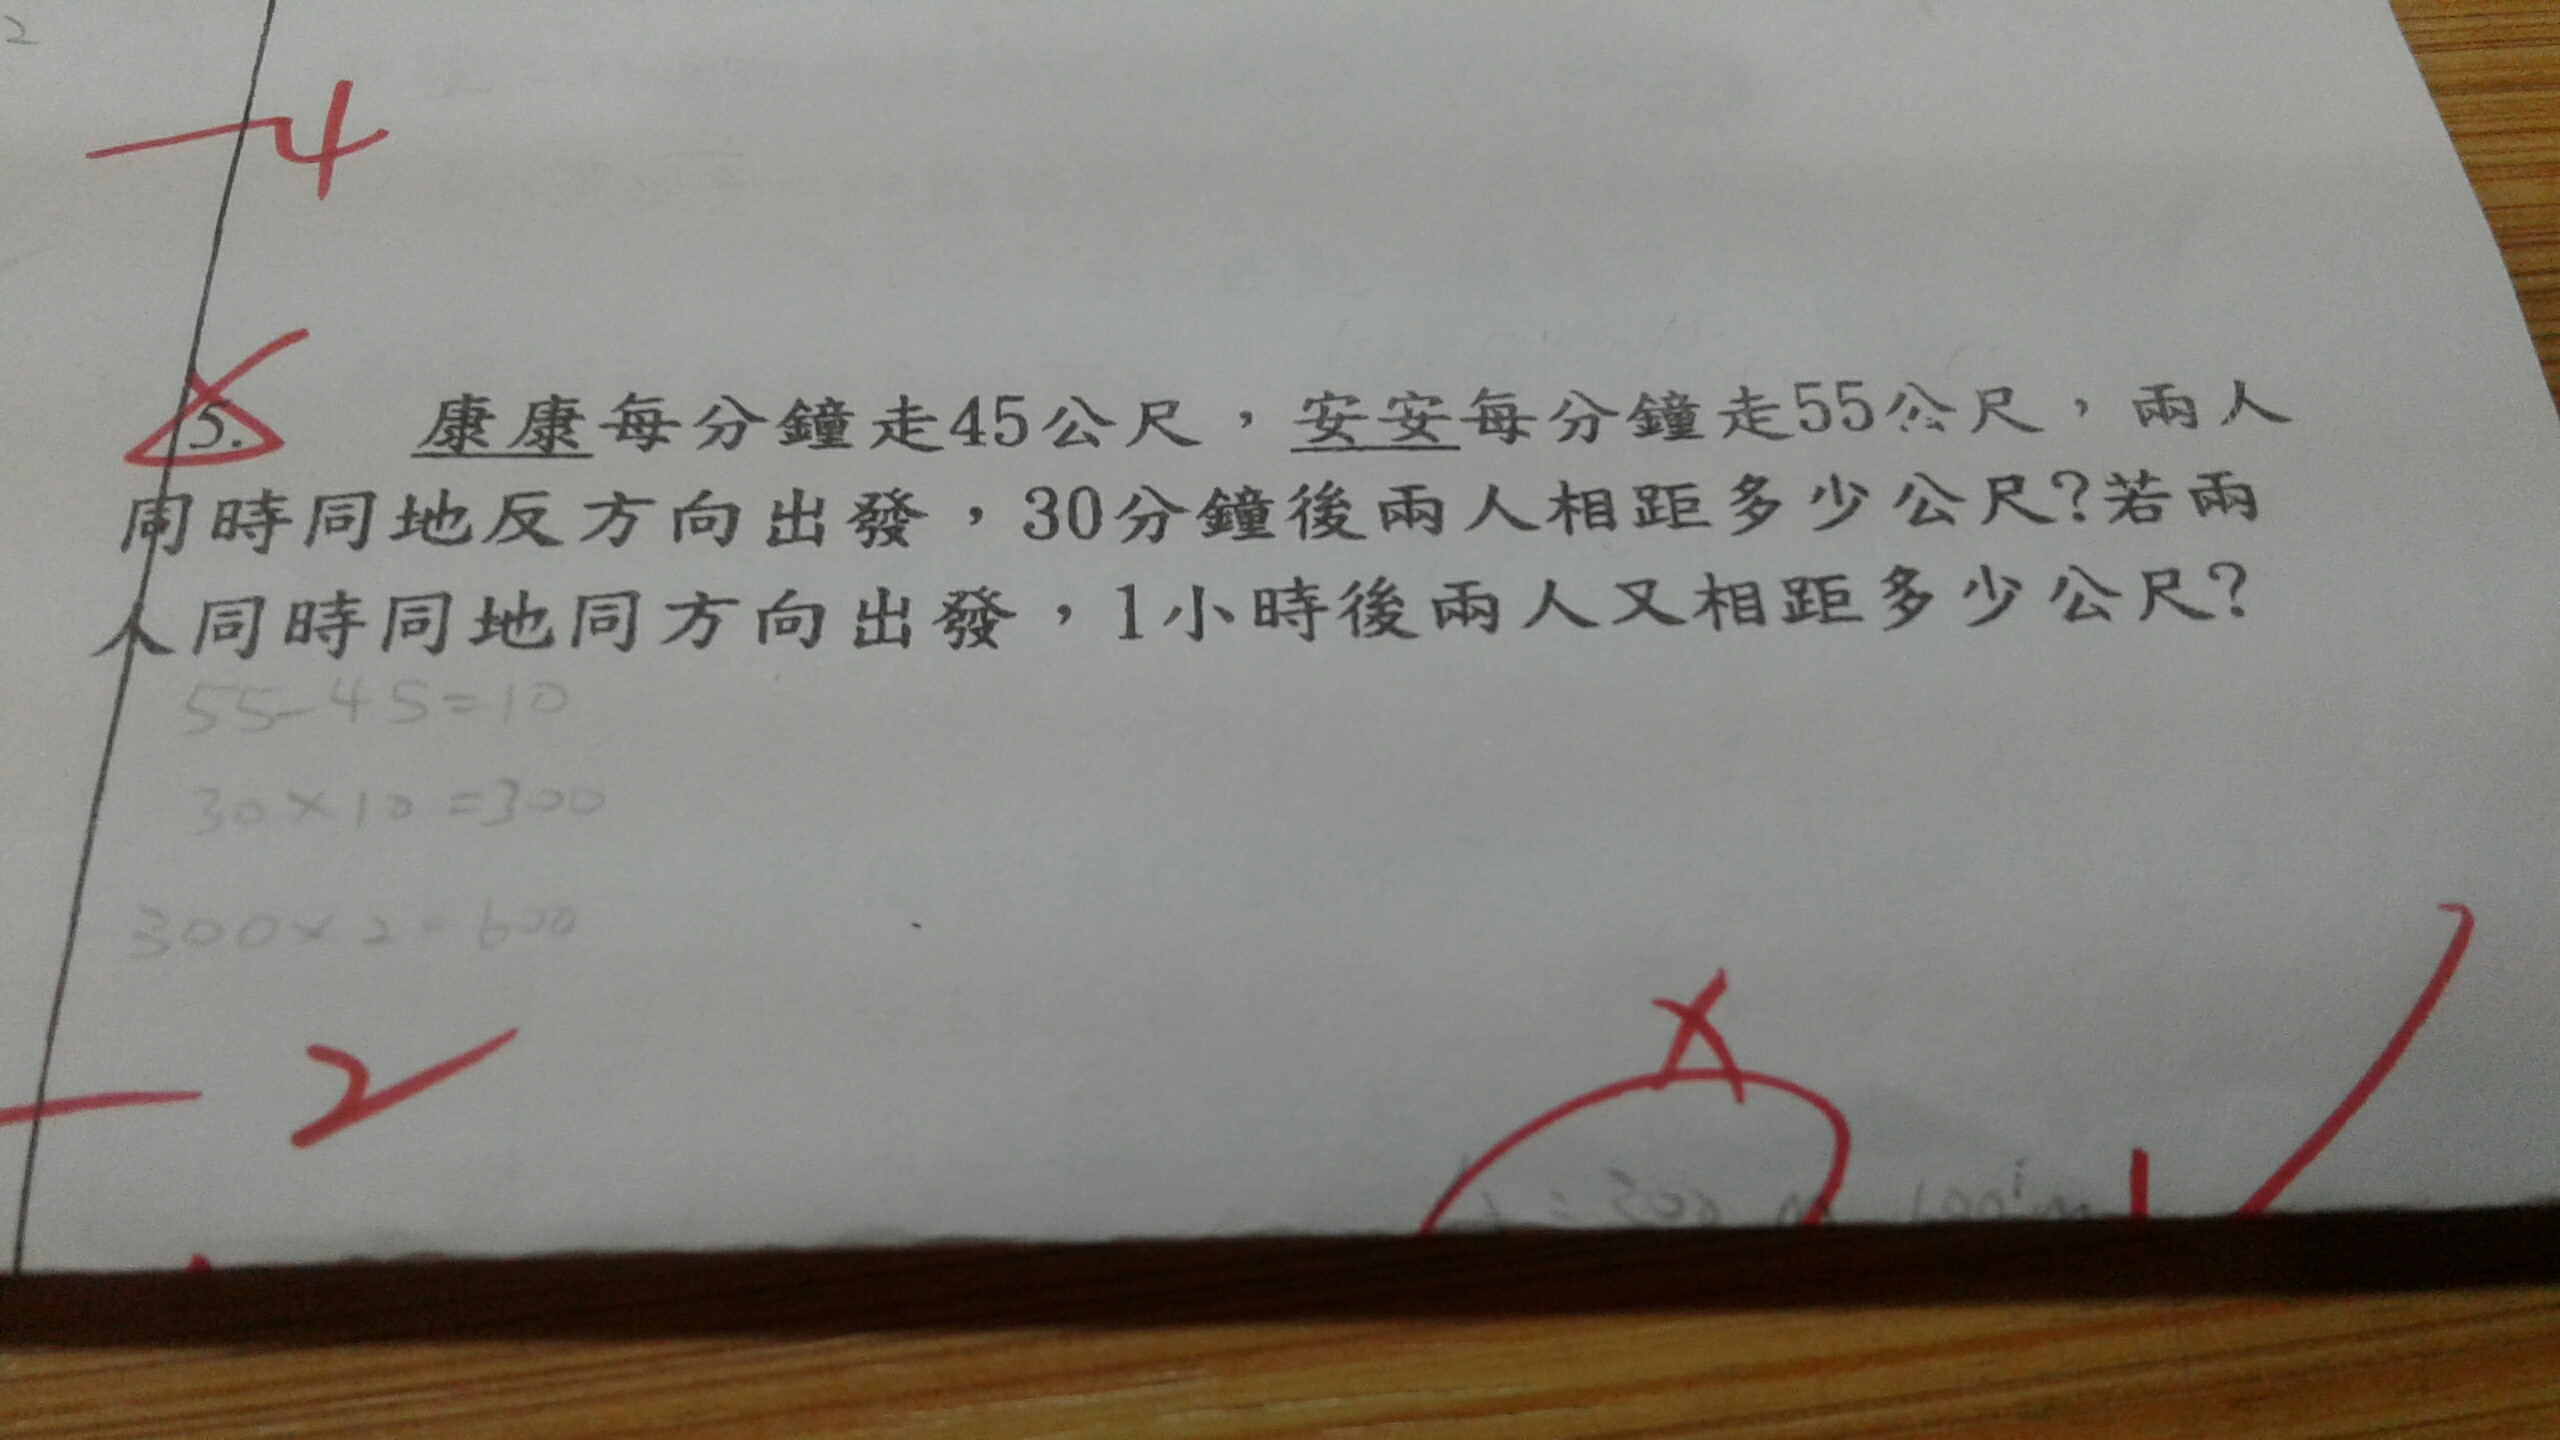 2
-4
5. 康康每分鐘走45公尺，安安每分鐘走55公尺，兩人
同時同地反方向出發，30分鐘後兩人相距多少公尺?若兩
人同時同地同方向出發，1小時後兩人又相距多少公尺?
55-45=10
30×10=300
300×2=600
-2